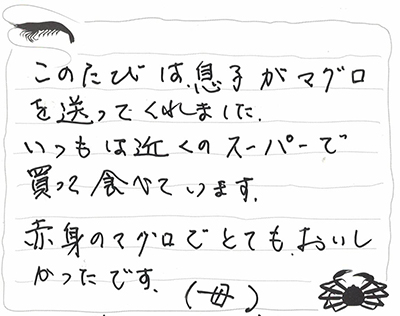 このたびは、息子がマグロ
を送ってくれました。
いつもは近くのスーパーで
買って食べています。
赤身のマグロでとても、おいし
かったです。
(母)